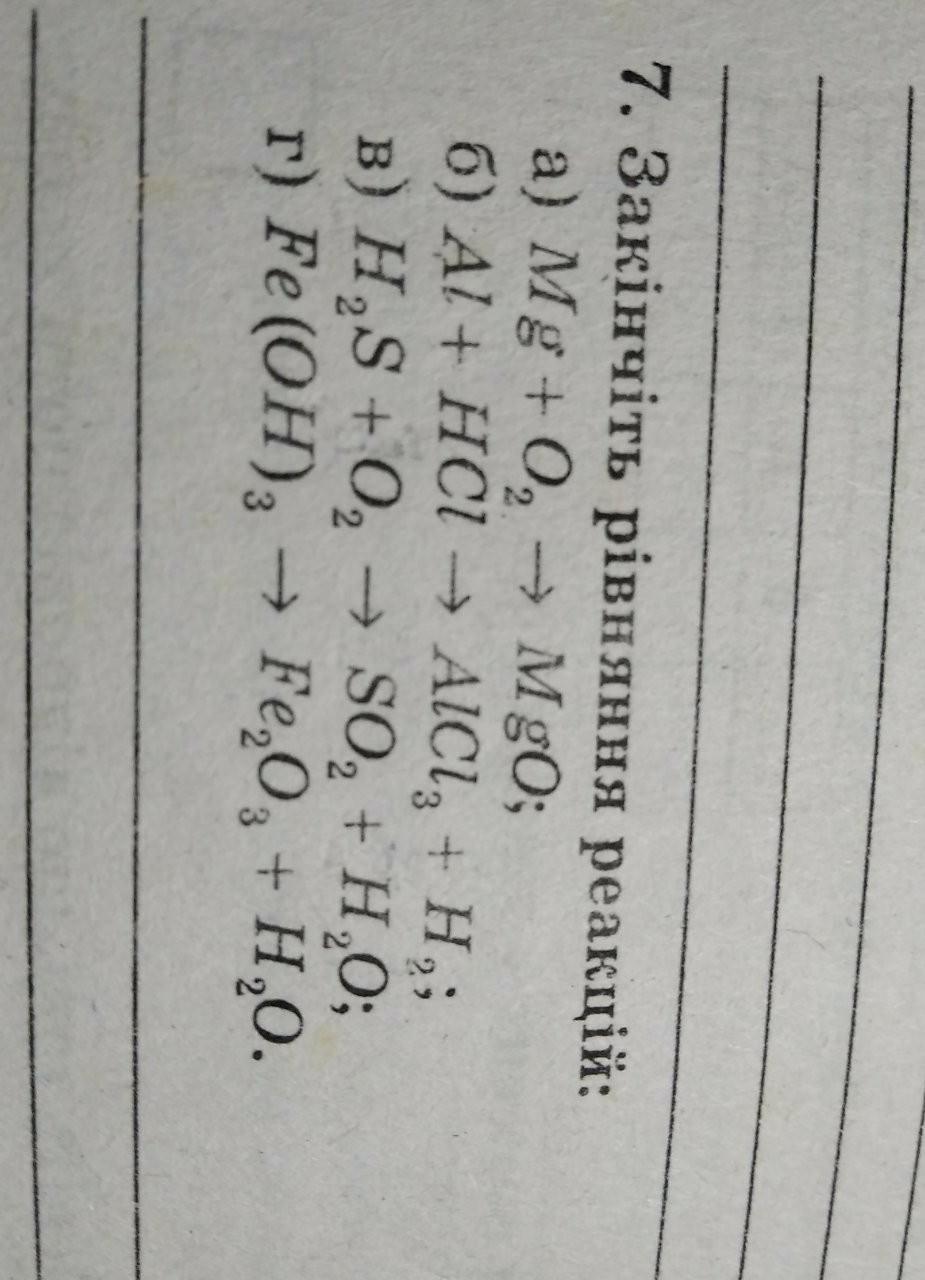 7. Закінчіть рівняння реакцій:
а) Mg + O₂ → MgO;
б) Al + HCl → AlCl₃ + H₂;
в) H₂S + O₂ → SO₂ + H₂O;
г) Fe(OH)₃ → Fe₂O₃ + H₂O.